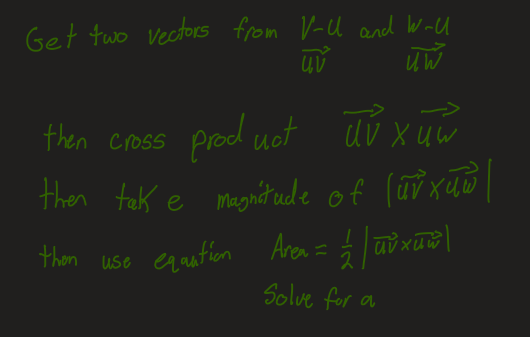 Get two vectors from V-U and W-U
→UV →UW
then cross product →UV × →UW
then take magnitude of |→UV × →UW|
then use eqaution Area = 1/2 |→UV × →UW|
Solve for a